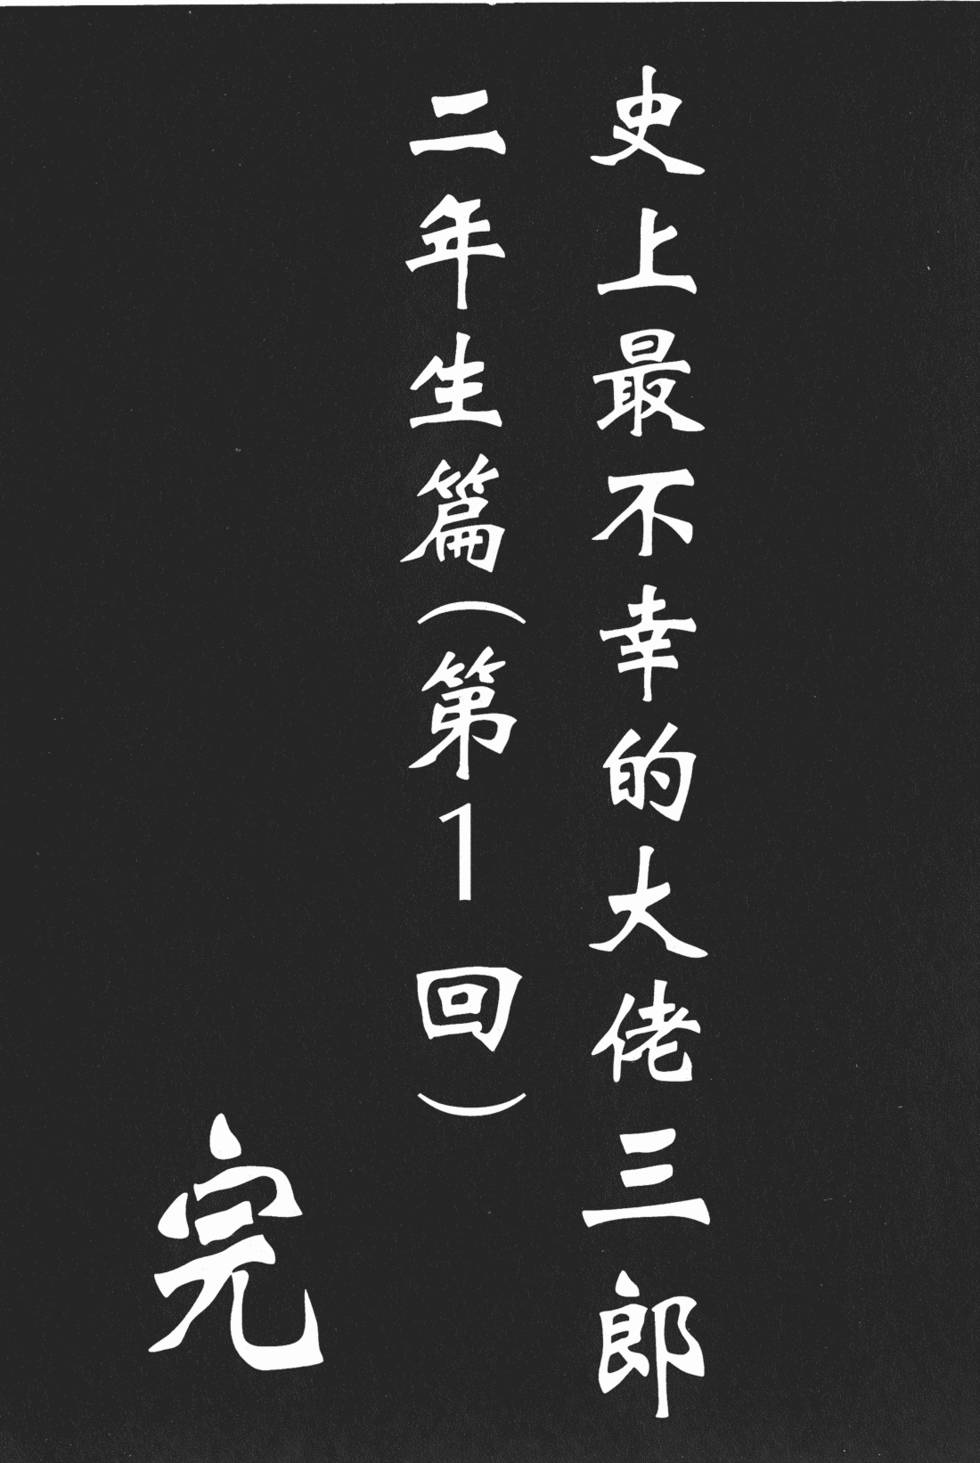 史上最不幸的大佬三郎
二年生篇(第1回)
完